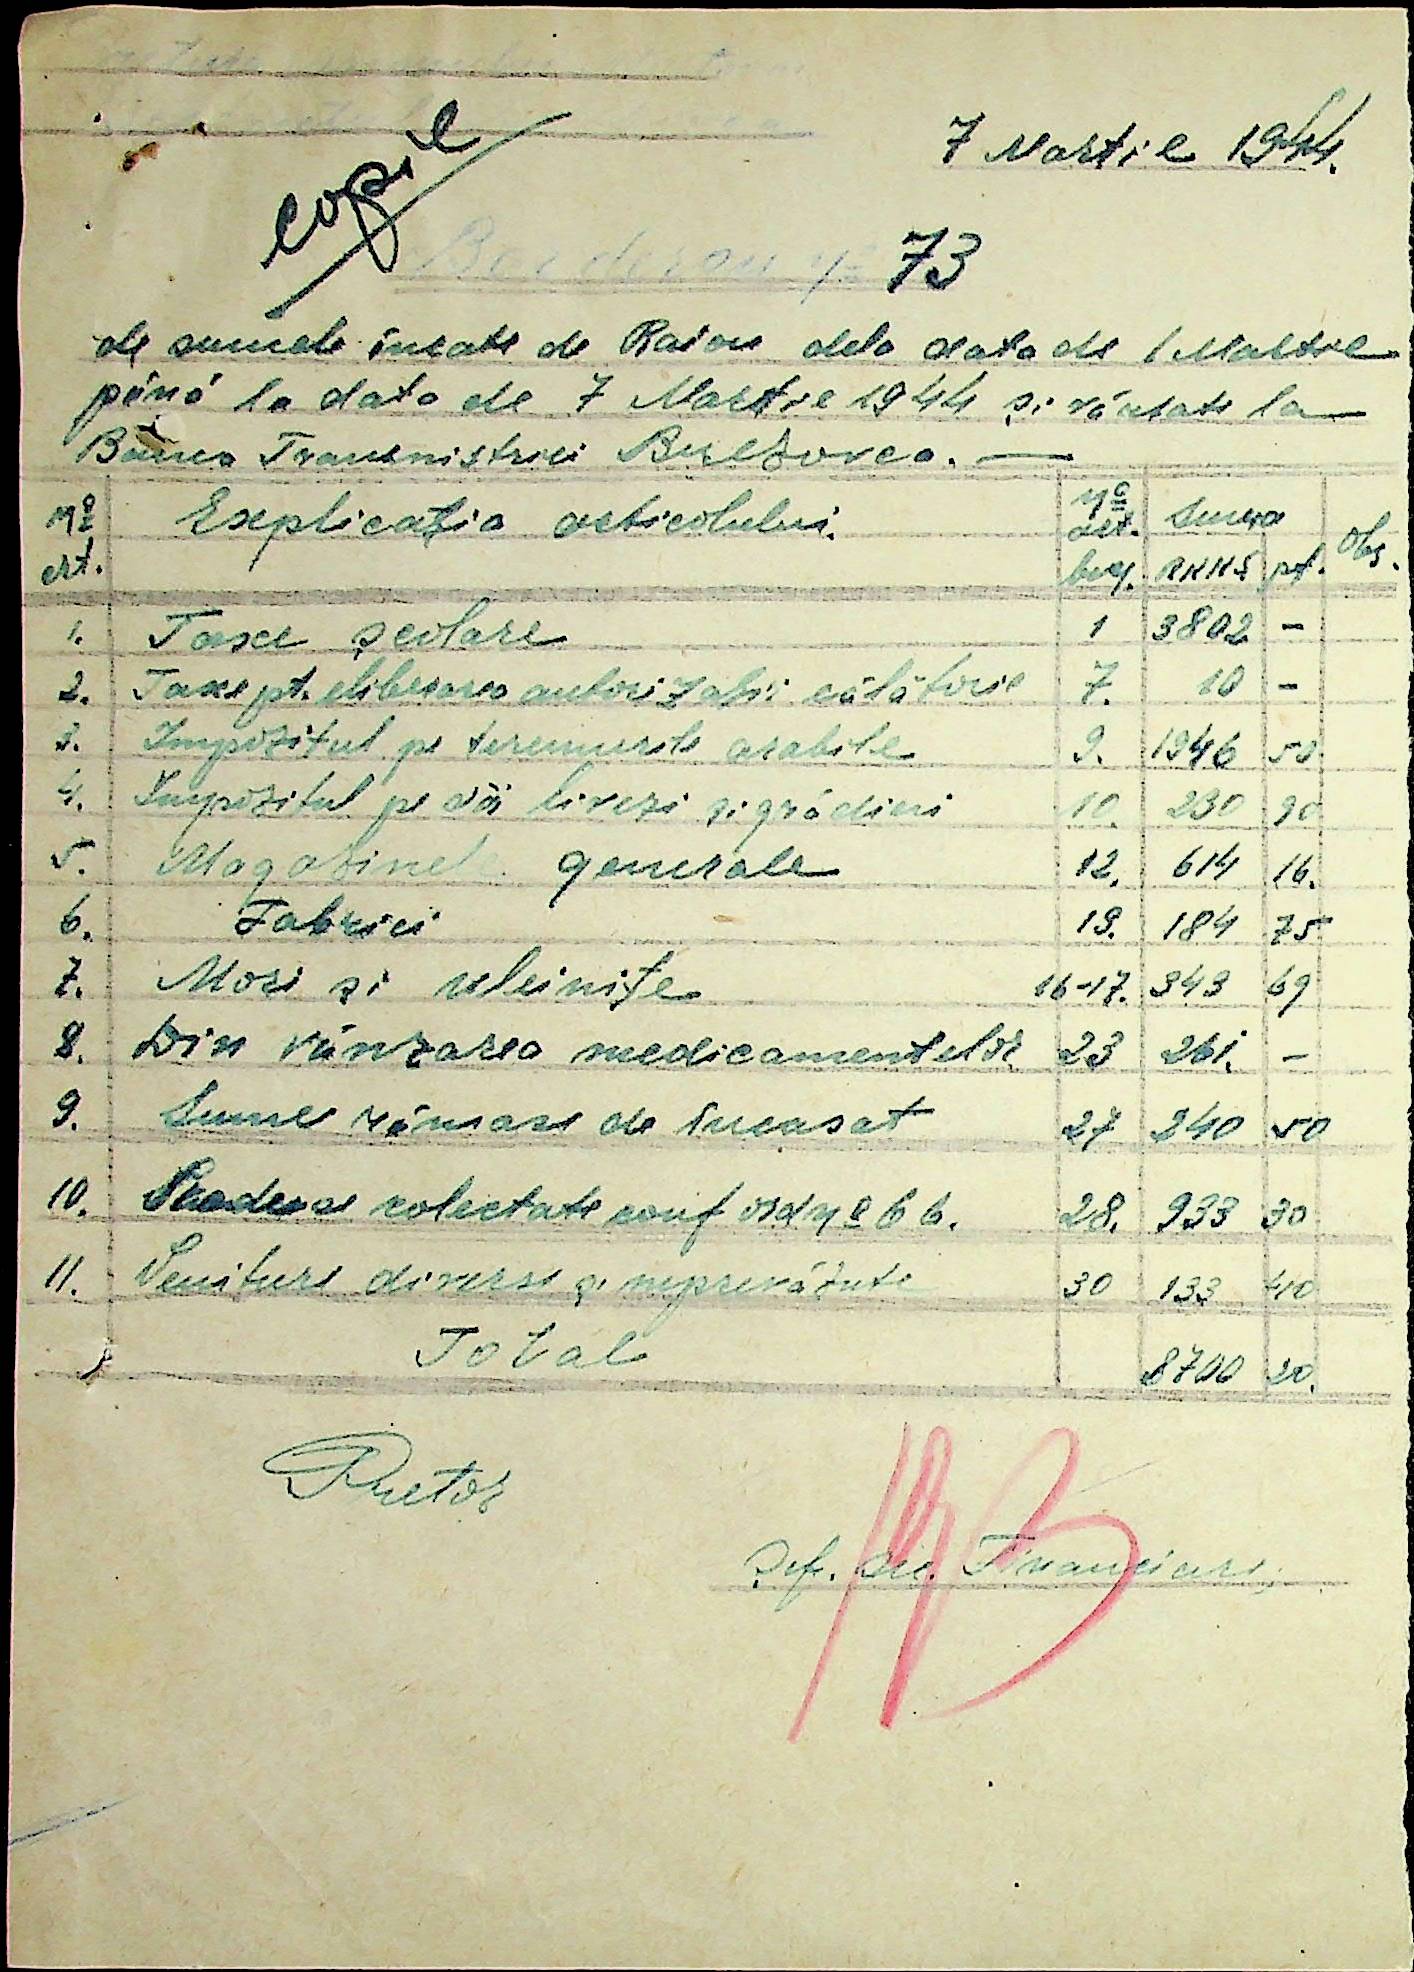 copie
7 Martie 1944.
Borderou № 73
de sumele încate de Raion dela data de 1 Martie
până la data de 7 Martie 1944 și vărsate la
Banca Transnistriei Berezovca. —
№ crt. Explicația articolului. № art. bug. Suma RKKS pf. Obs.
1. Taxe școlare 1 3802 –
2. Taxe pt. eliberarea autorizații călătorie 7. 10 –
3. Impozitul pe terenurile arabile 9. 1946 50
4. Impozitul pe vii livezi și grădini 10. 230 90
5. Magazinele generale 12. 614 16.
6. Fabrici 13. 184 75
7. Mori și uleinițe 16-17. 343 69
8. Din vânzarea medicamentelor 23 261. –
9. Sume rămase de încasat 27 240 50
10. colectate conf ord № 66. 28. 933 30
11. Venituri diverse și neprevăzute 30 133 40
Total 8700 20.
Pretor
Șef. Sec. Financiare,